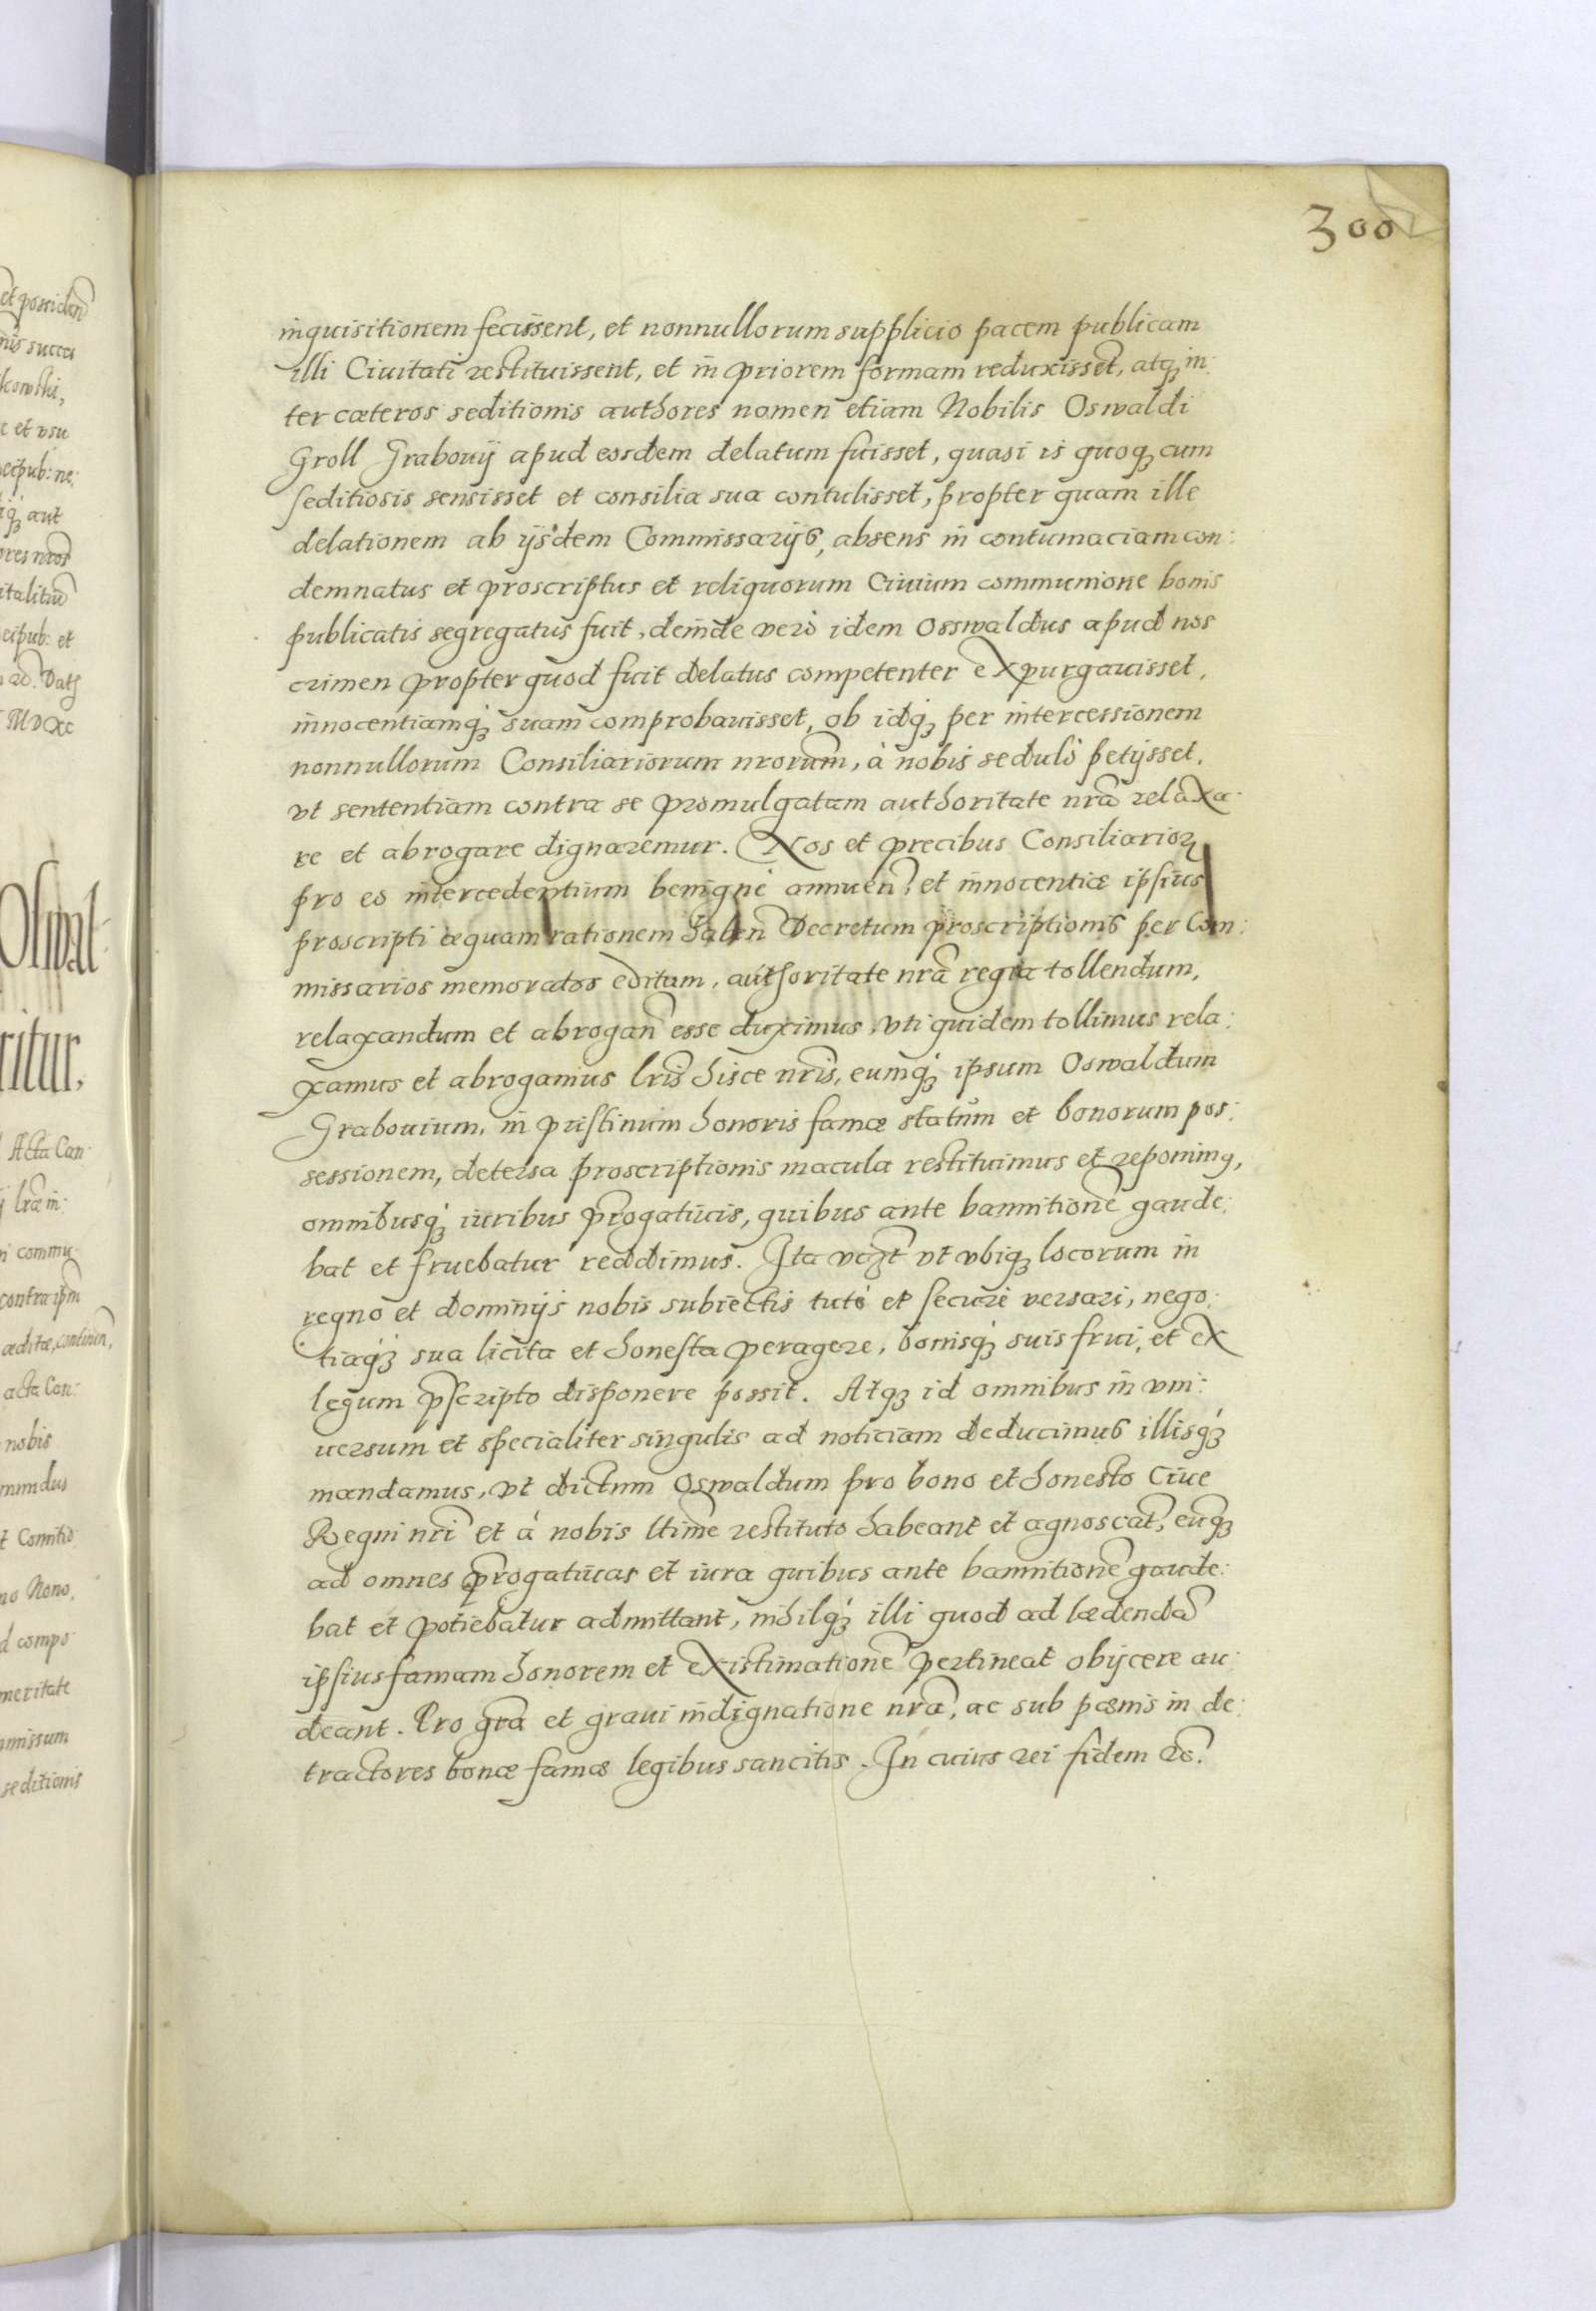 300
inquisitionem fecissent, et nonnullorum supplicio pacem publicam
illi Ciuitati restituissent, et in priorem formam reduxisset, atq₃ in:
ter cæteros seditionis authores nomen etiam Nobilis Oswaldi
Groll Grabouij apud eosdem delatum fuisset, quasi is quoq₃ cum
seditiosis sensisset et consilia sua contulisset, propter quam ille
delationem ab ijsdem Commissarijs, absens in contumaciam con:
demnatus et proscriptus et reliquorum Ciuium communione bonis
publicatis segregatus fuit, deinde verò idem Osswaldus apud nos
crimen propter quod fuit delatus competenter expurgauisset,
innocentiamq₃ suam comprobauisset, ob idq₃ per intercessionem
nonnullorum Consiliariorum nrorum, à nobis sedulò petijsset,
vt sententiam contra se promulgatam authoritate nrã relaxa
re et abrogare dignaremur. Nos et precibus Consiliarioꝝ
pro eo intercedentium benignè annuen̄, et innocentiæ ipsius
proscripti æquam rationem haben̄ Decretum proscriptionis per Com:
missarios memoratos editum, authoritate nrã regia tollendum,
relaxandum et abrogan̄ esse duximus, vti quidem tollimus rela:
xamus et abrogamus lris̃ hisce nris̃, eumq₃ ipsum Oswaldum
Grabouium, in pristinum honoris famæ statum et bonorum pos:
sessionem, detersa proscriptionis macula restituimus et reponimꝰ,
omnibusq₃ iuribus p̃rogatiuis, quibus ante bannitionẽ gaude:
bat et fruebatur reddimus. Ita vt vbiq₃ locorum in
regno et dominijs nobis subiectis tutè et securè versari, nego:
tiaq₃ sua licita et honesta peragere, bonisq₃ suis frui, et ex
legum p̃scripto disponere possit. Atq₃ id omnibus in vni:
uersum et specialiter singulis ad noticiam deducimus illisq₃
mandamus, vt dictum Oswaldum pro bono et honesto Ciue
Regni nri̇̃ et à nobis ltimẽ restituto habeant et agnoscãt, eũq₃
ad omnes p̃rogatiuas et iura quibus ante bannitionẽ gaude:
bat et potiebatur admittant, nihilq₃ illi quod ad lædendã
ipsius famam honorem et existimationẽ pertineat obijcere au:
deant. Pro grã et graui indignatione nrã, ac sub pœnis in de:
tractores bonæ famæ legibus sancitis. In cuius rei fidem ꝛc̃.